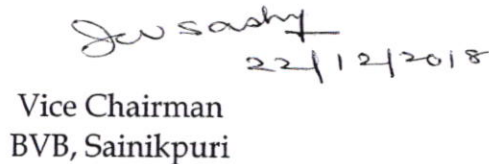 22/12/2018
Vice Chairman
BVB, Sainikpuri